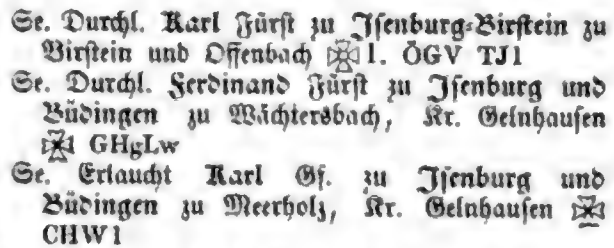 Se. Durchl. Karl Fürst zu Isenburg-Birstein zu
Birstein und Offenbach 1. ÖGV TJ1
Se. Durchl. Ferdinand Fürst zu Isenburg und
Büdingen zu Wächtersbach, Kr. Gelnhausen
GHgLw
Se. Erlaucht Karl Gf. zu Isenburg und
Büdingen zu Meerholz, Kr. Gelnhausen
CHW1